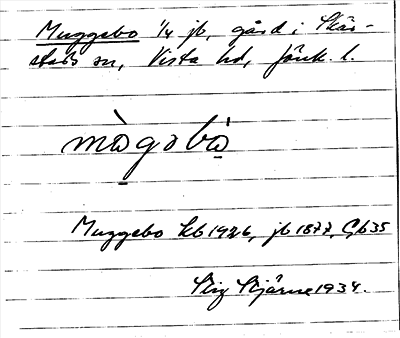 Muggebo 1/4 jb, gård i Skär-
stads sn, Vista hd, Jönk. l.
mògobò
Muggebo kb 1926, jb 1877, Gb 35
Stig Stjärne 1934.